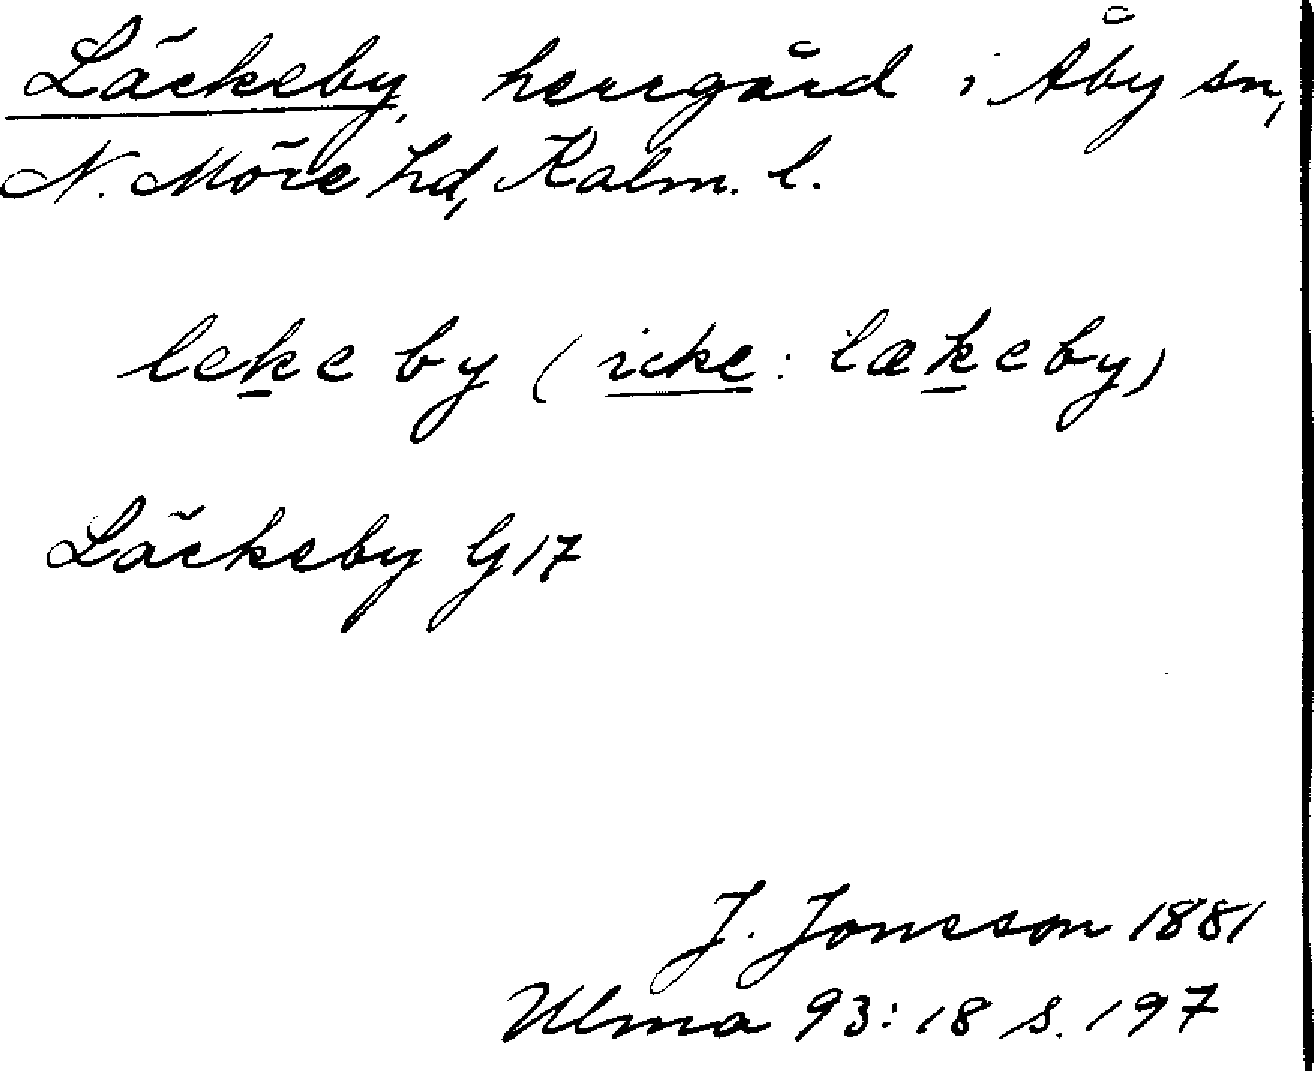 Läckeby, herrgård i Åby sn,
N. Möre hd, Kalm. l.
lekeby (icke: lækeby)
Läckeby G17
J. Jonsson 1881
Ulma 93:18 s. 197